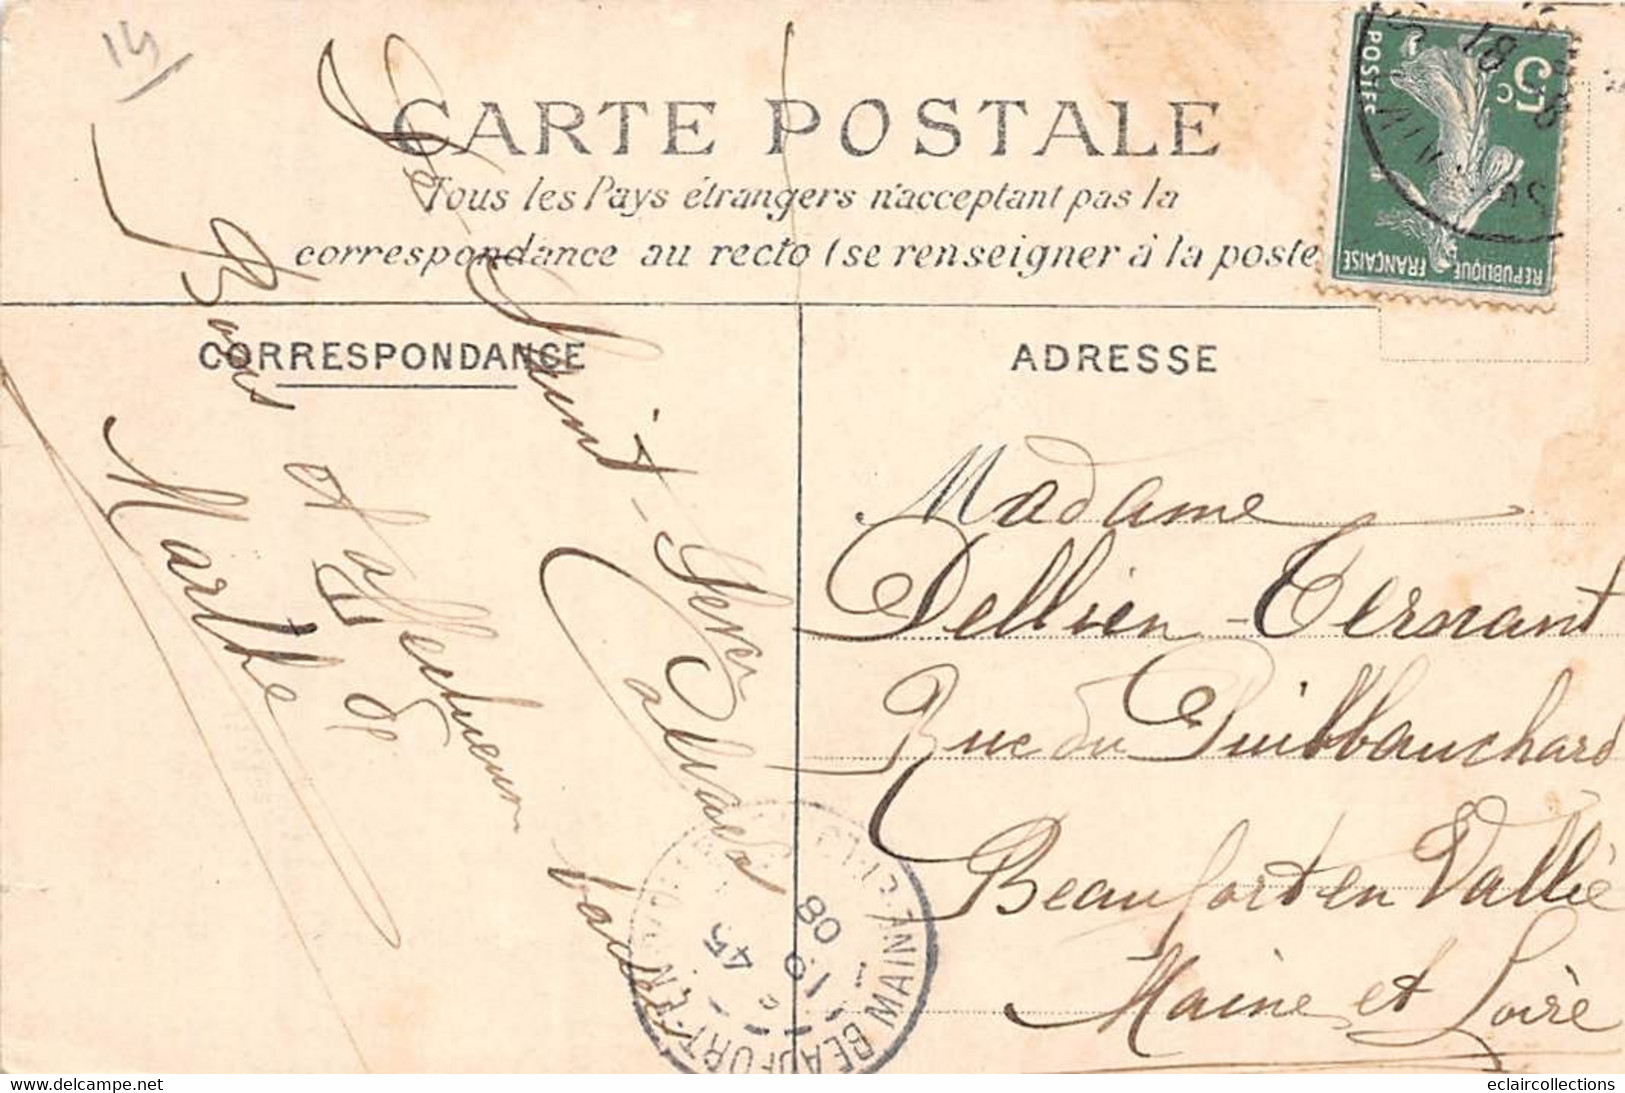 14
CARTE POSTALE
Tous les Pays étrangers n'acceptant pas la
correspondance au recto (se renseigner à la poste
5c
POSTES
REPUBLIQUE
FRANÇAISE
CORRESPONDANCE
Saint-Sever
Calvados
Bons et affectueux
baisers de
Marthe
ADRESSE
Madame
Dellien-Ternant
Rue du Puibbauchard
Beaufort en Vallée
Maine et Loire
BEAUFORT-EN-
MAINE-ET-L
45
19
08
eclaircollections